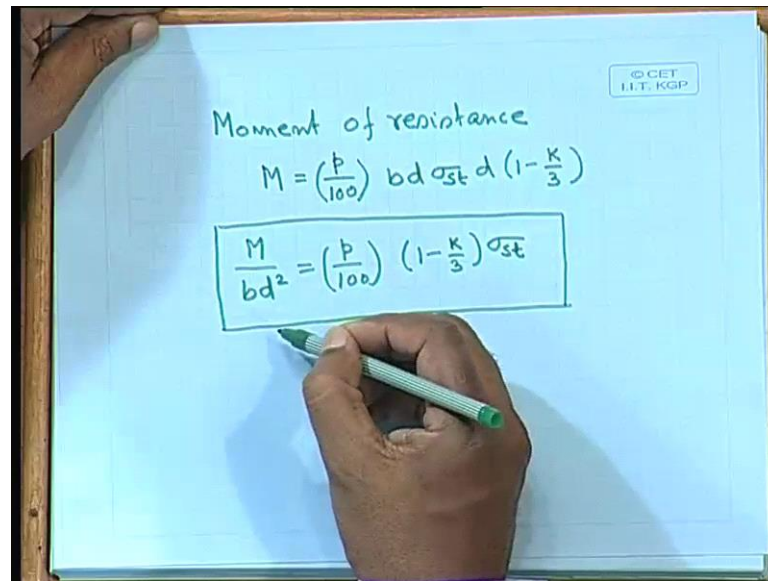 © CET
I.I.T. KGP
Moment of resistance
M = (p/100) bd σst d (1 - k/3)
M/bd² = (p/100) (1 - k/3) σst